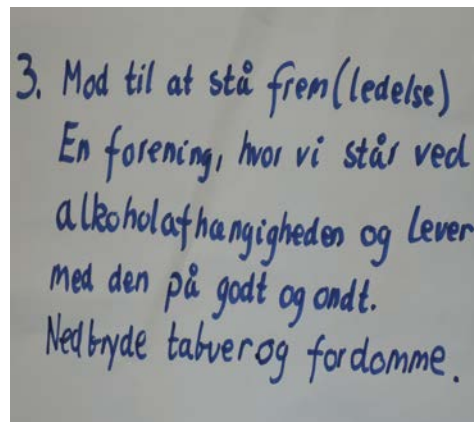 3. Mod til at stå frem (ledelse)
En forening, hvor vi står ved
alkoholafhængigheden og lever
med den på godt og ondt.
Nedbryde tabuer og fordomme.